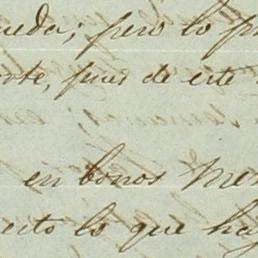 ueda; pero lo p
orte, pues de este
en bonos Me
erto lo que ha